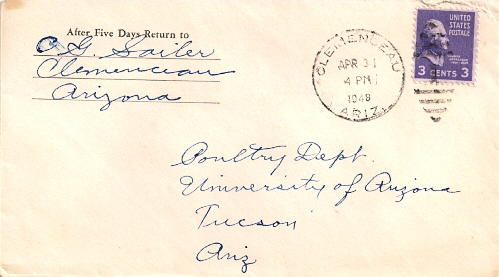 After Five Days Return to
C. G. Sailer
Clemenceau
Arizona
CLEMENCEAU
APR 31
4 PM
1948
ARIZ.
UNITED
STATES
POSTAGE
3 CENTS 3
Poultry Dept.
University of Arizona
Tucson
Ariz